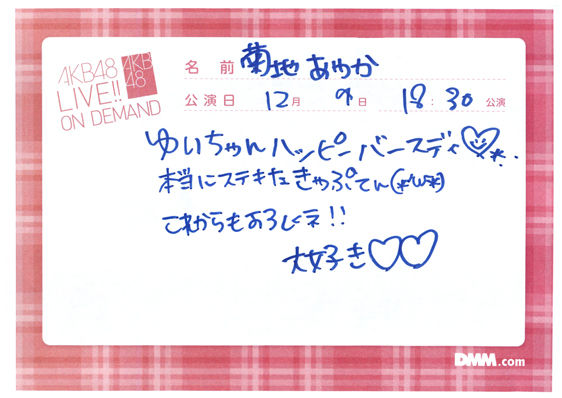 AKB48
LIVE!!
ON DEMAND
AKB
48
名 前 菊地あやか
公演日 12月 9日 18:30 公演
ゆいちゃんハッピーバースディ♡
本当にステキなきゃぷてん(*'ω'*)
これからもよろしくネ!!
大好き♡♡
DMM.com